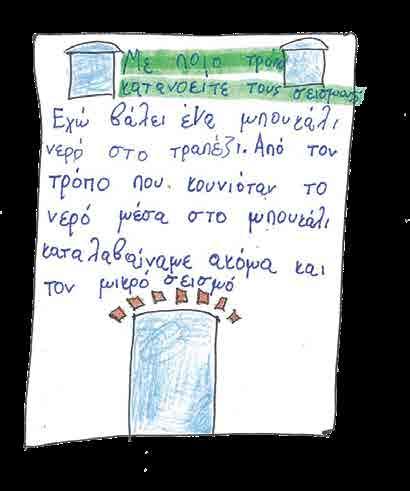 Με ποιο τρόπο
κατανοείτε τους σεισμούς
Εχώ βάλει ένα μπουκάλι
νερό στο τραπέζι. Από τον
τρόπο που κουνιόταν το
νερό μέσα στο μπουκάλι
καταλαβαίναμε ακόμα και
τον μικρό σεισμό